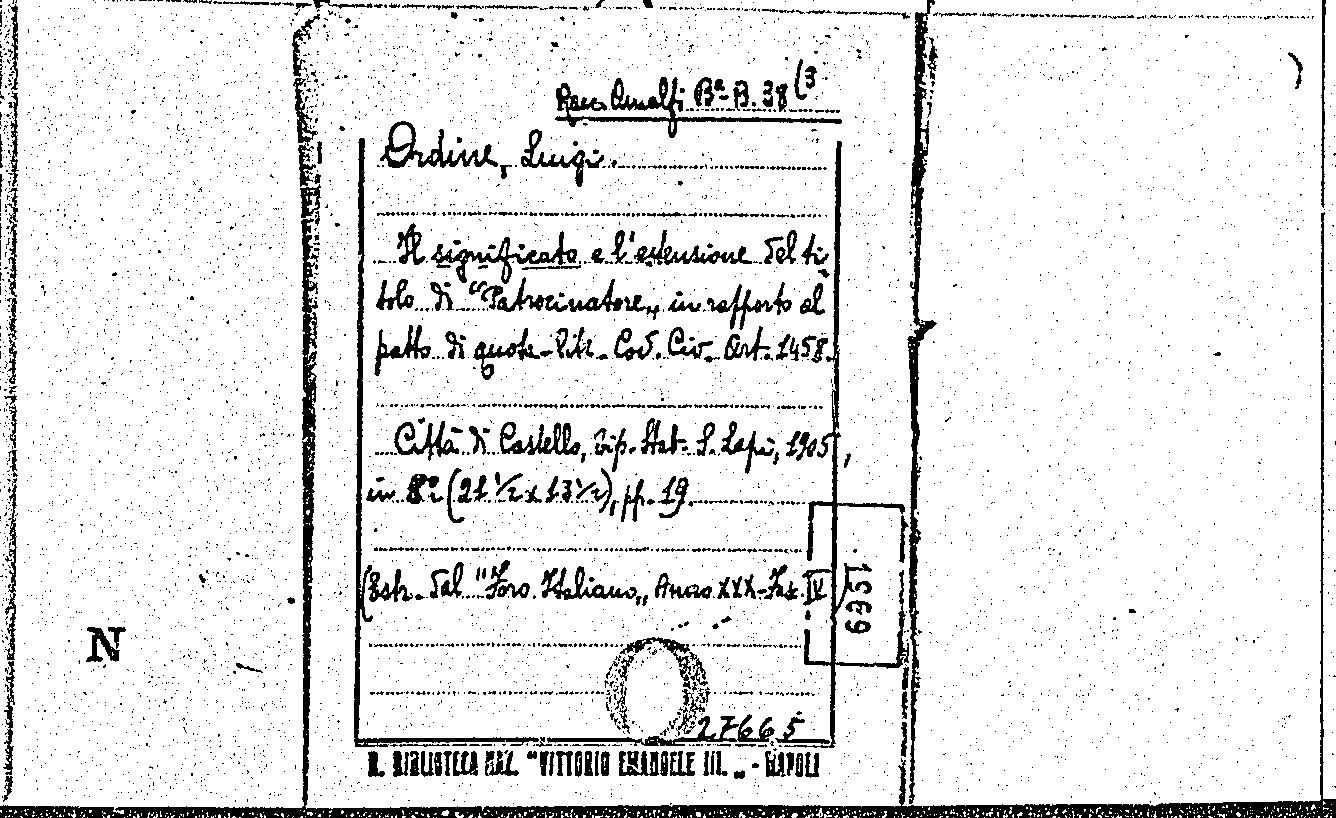 Racc. Amalfi Bª B. 38 (3
Ordine, Luigi.
Il significato e l'estensione del ti-
tolo di "Patrocinatore„ in rapporto al
patto di quota-lite. Cod. Civ. Art. 1458.
Città di Castello, Tip. Stab. S. Lapi, 1905,
in 8º (21 ½ x 13 ½), pp. 19.
(Estr. dal "Foro Italiano„ Anno XXX - Fasc. IV)
27665
R. BIBLIOTECA NAZ. "VITTORIO EMANUELE III.„ - NAPOLI
N